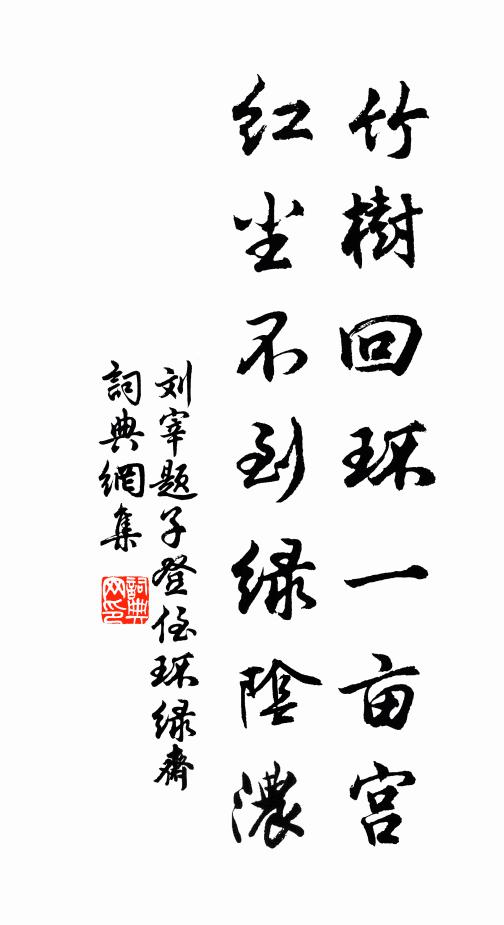 竹樹回环一亩宫
红尘不到绿阴濃
刘宰题子登侄环绿斋
詞典網集
詞典
网印